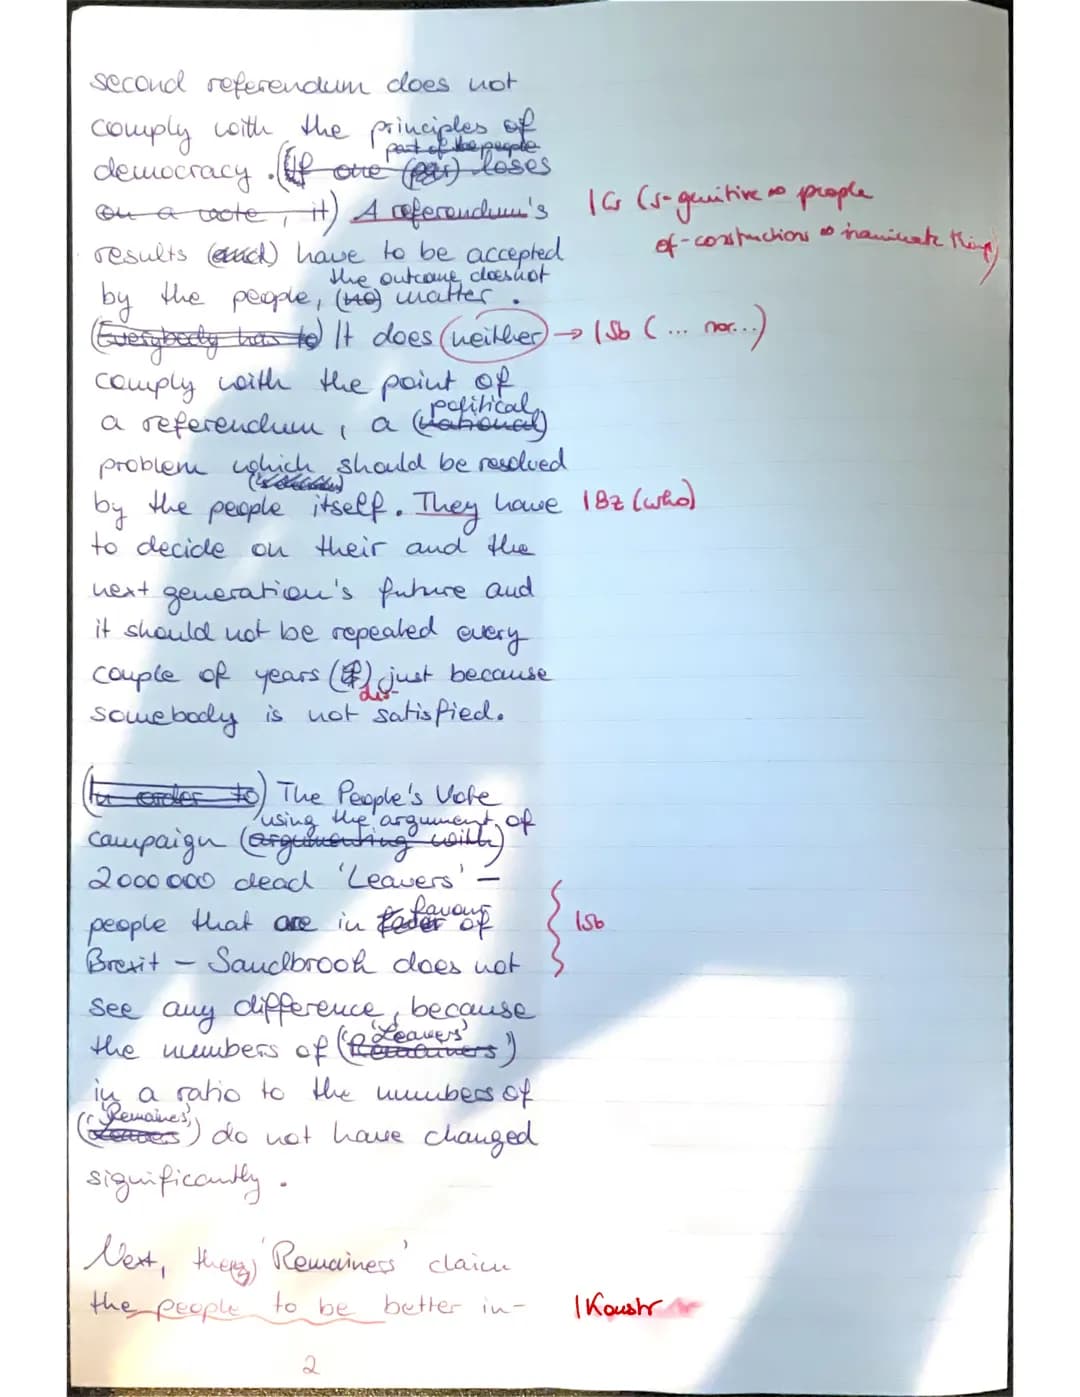 second referendum does not
comply with the principles of
part of the people
democracy. (If one (par) loses
on a vote, it) A referendum's
|Gr (s-genitive → people
of-constructions → inanimate things)
results (and) have to be accepted
the outcome does not
by the people, (no) matter.
(Everybody has to) It does neither → |Sb (... nor...)
comply with the point of
political
a referendum, a (national)
problem which should be resolved
by the people itself. They have |Bz (who)
to decide on their and the
next generation's future and
it should not be repeated every
couple of years (if) just because
dis-
somebody is not satisfied.
(In order to) The People's Vote
using the argument of
campaign (argumenting with)
2000000 dead 'Leavers' –
favour
people that are in of |Sb
Brexit – Sandbrook does not
see any difference, because
'Leavers'
the numbers of ('Remainers')
in a ratio to the numbers of
'Remaines'
(Leavers) do not have changed
significantly.
Next, the 'Remainers' claim
the people to be better in- |Konstr
2